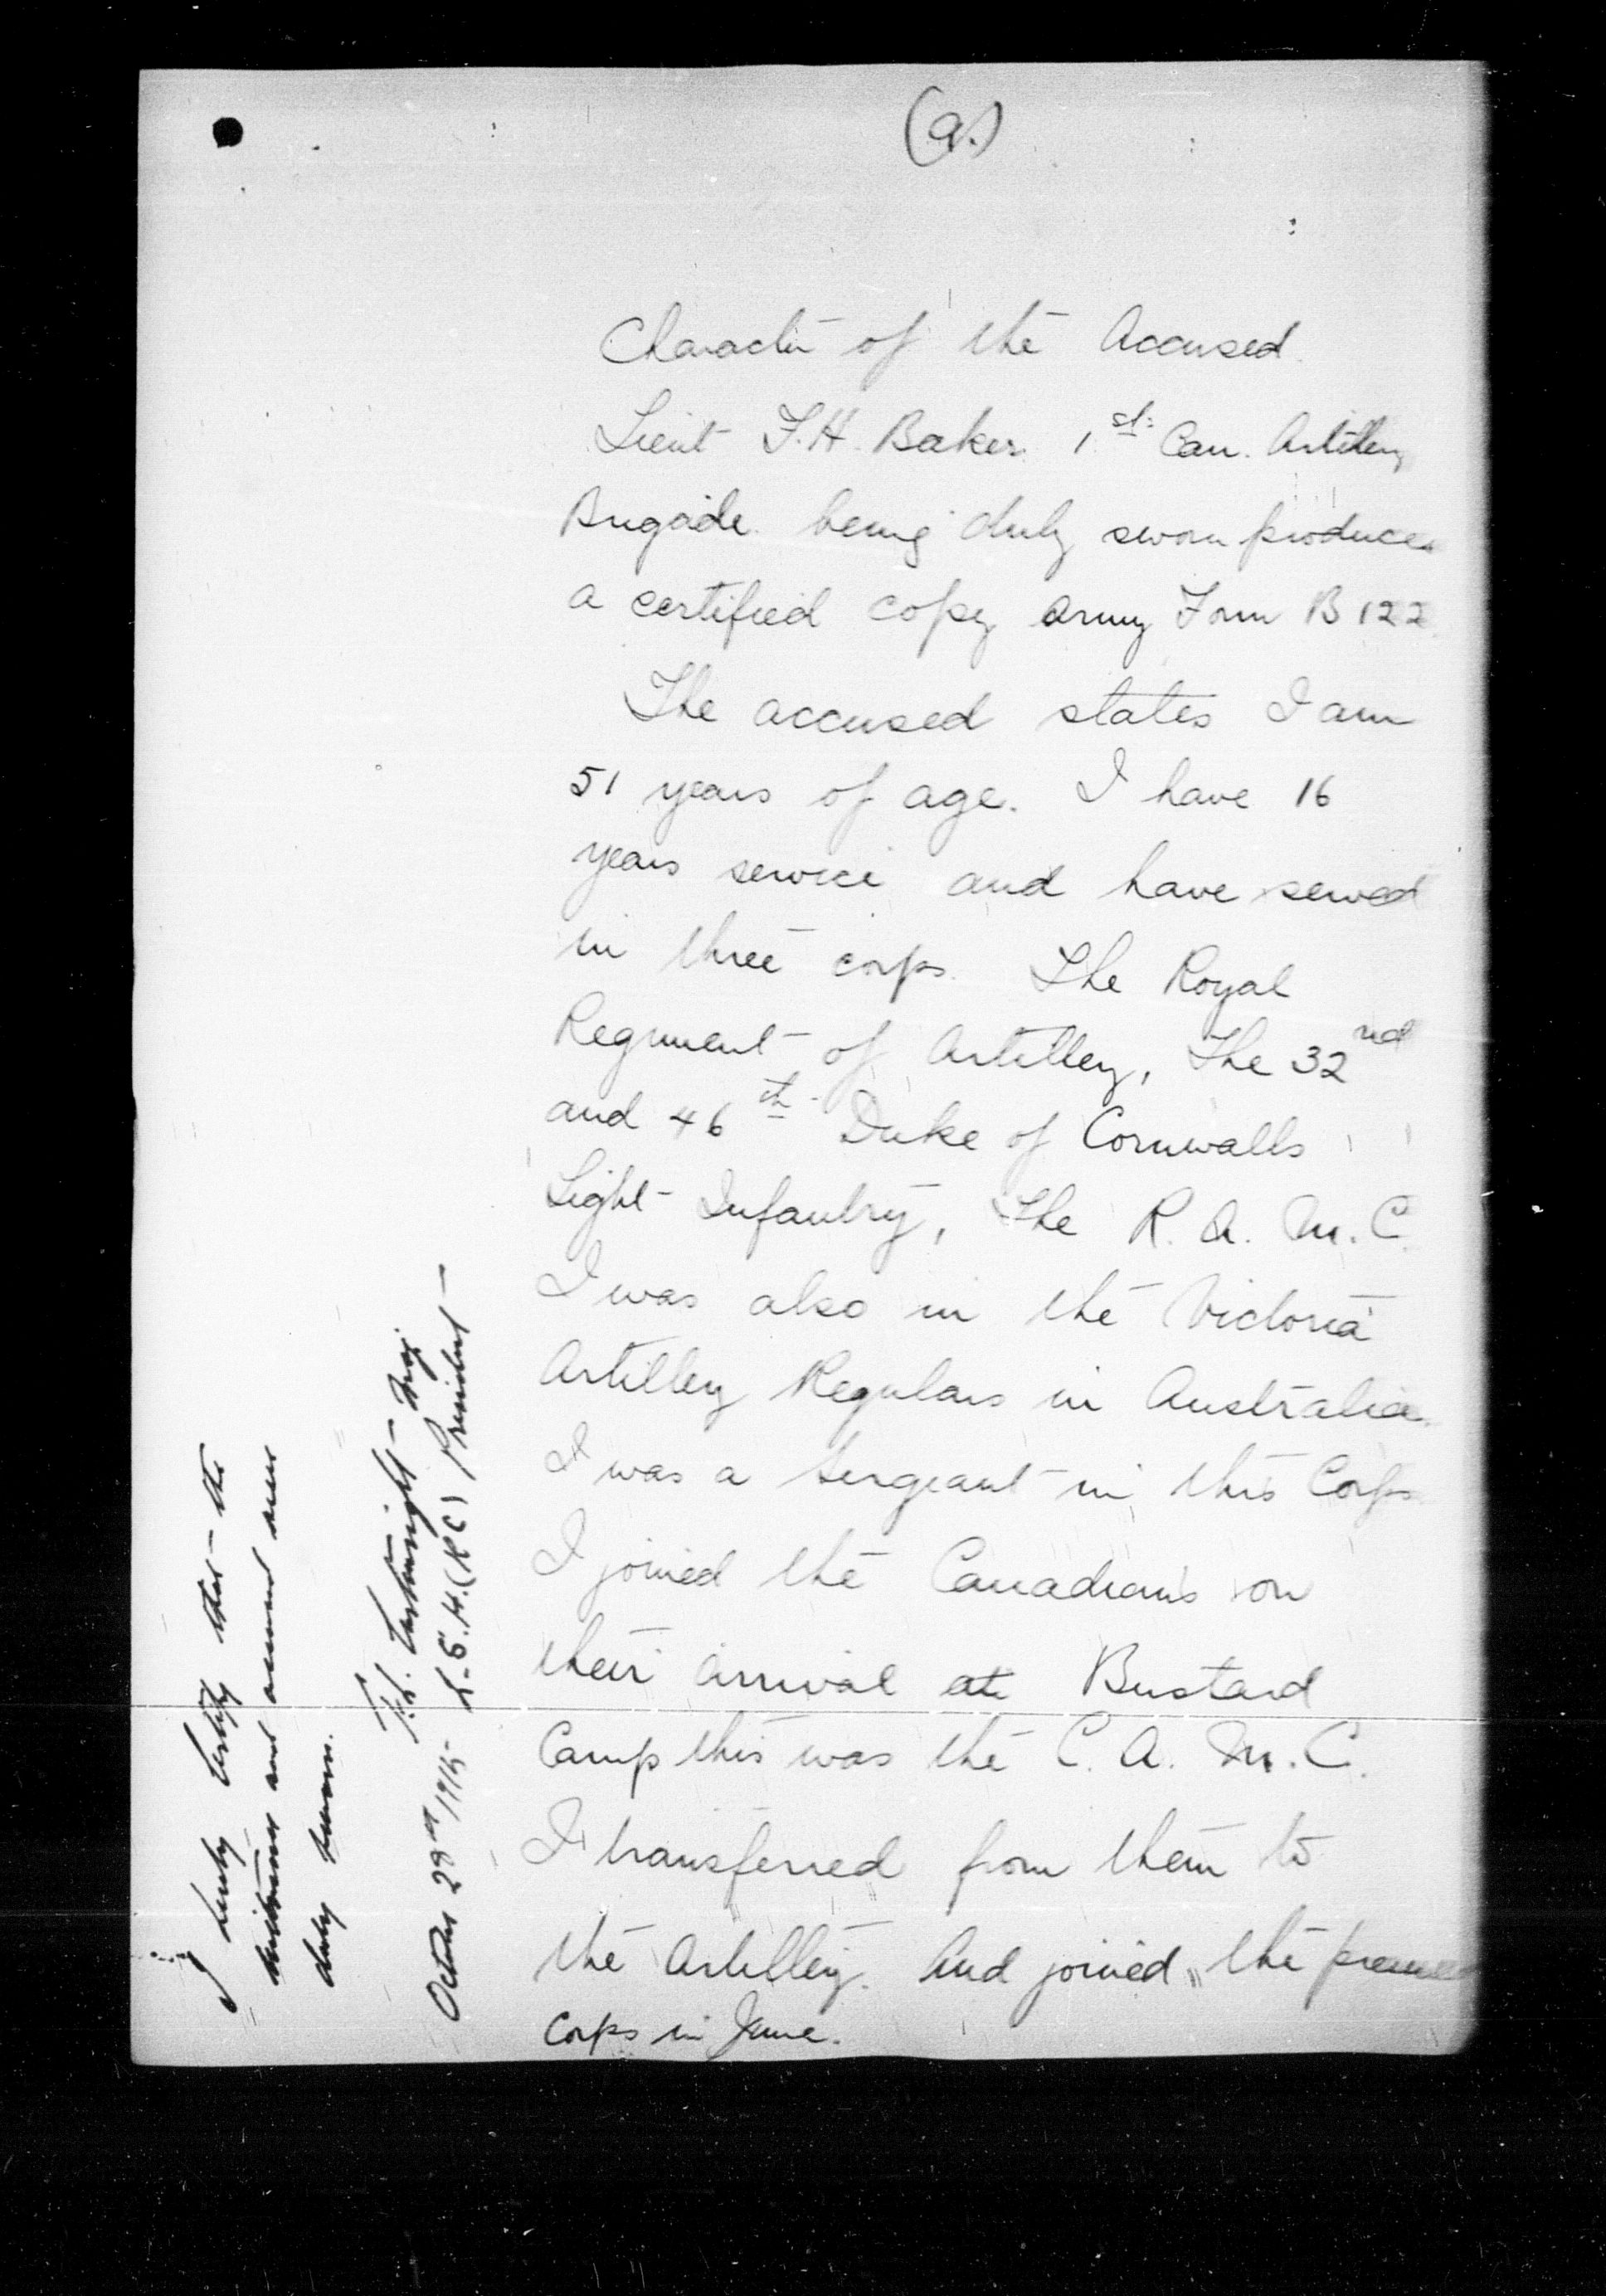 (9.)
Character of the Accused.
Lieut F.H. Baker 1st Can. Artillery
Brigade being duly sworn produces
a certified copy Army Form B 122
The accused states I am
51 years of age. I have 16
years service and have served
in three corps. The Royal
Regiment of Artillery, The 32nd
and 46th Duke of Cornwalls
Light Infantry, The R. A. M. C.
I was also in the Victoria
Artillery Regulars in Australia.
I was a Sergeant in this Corps
I joined the Canadians on
their arrival at Bustard
Camp this was the C. A. M. C.
I transferred from them to
the Artillery. And joined the present
Corps in June.
I hereby certify that the
witnesses and accused were
duly sworn.
Maj
L.S.H. (R C) President
October 28th 1915